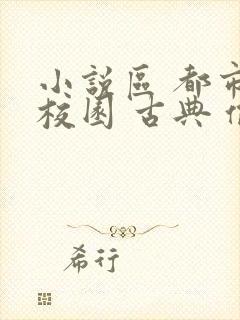 小說區 都市
校園 古典
希行